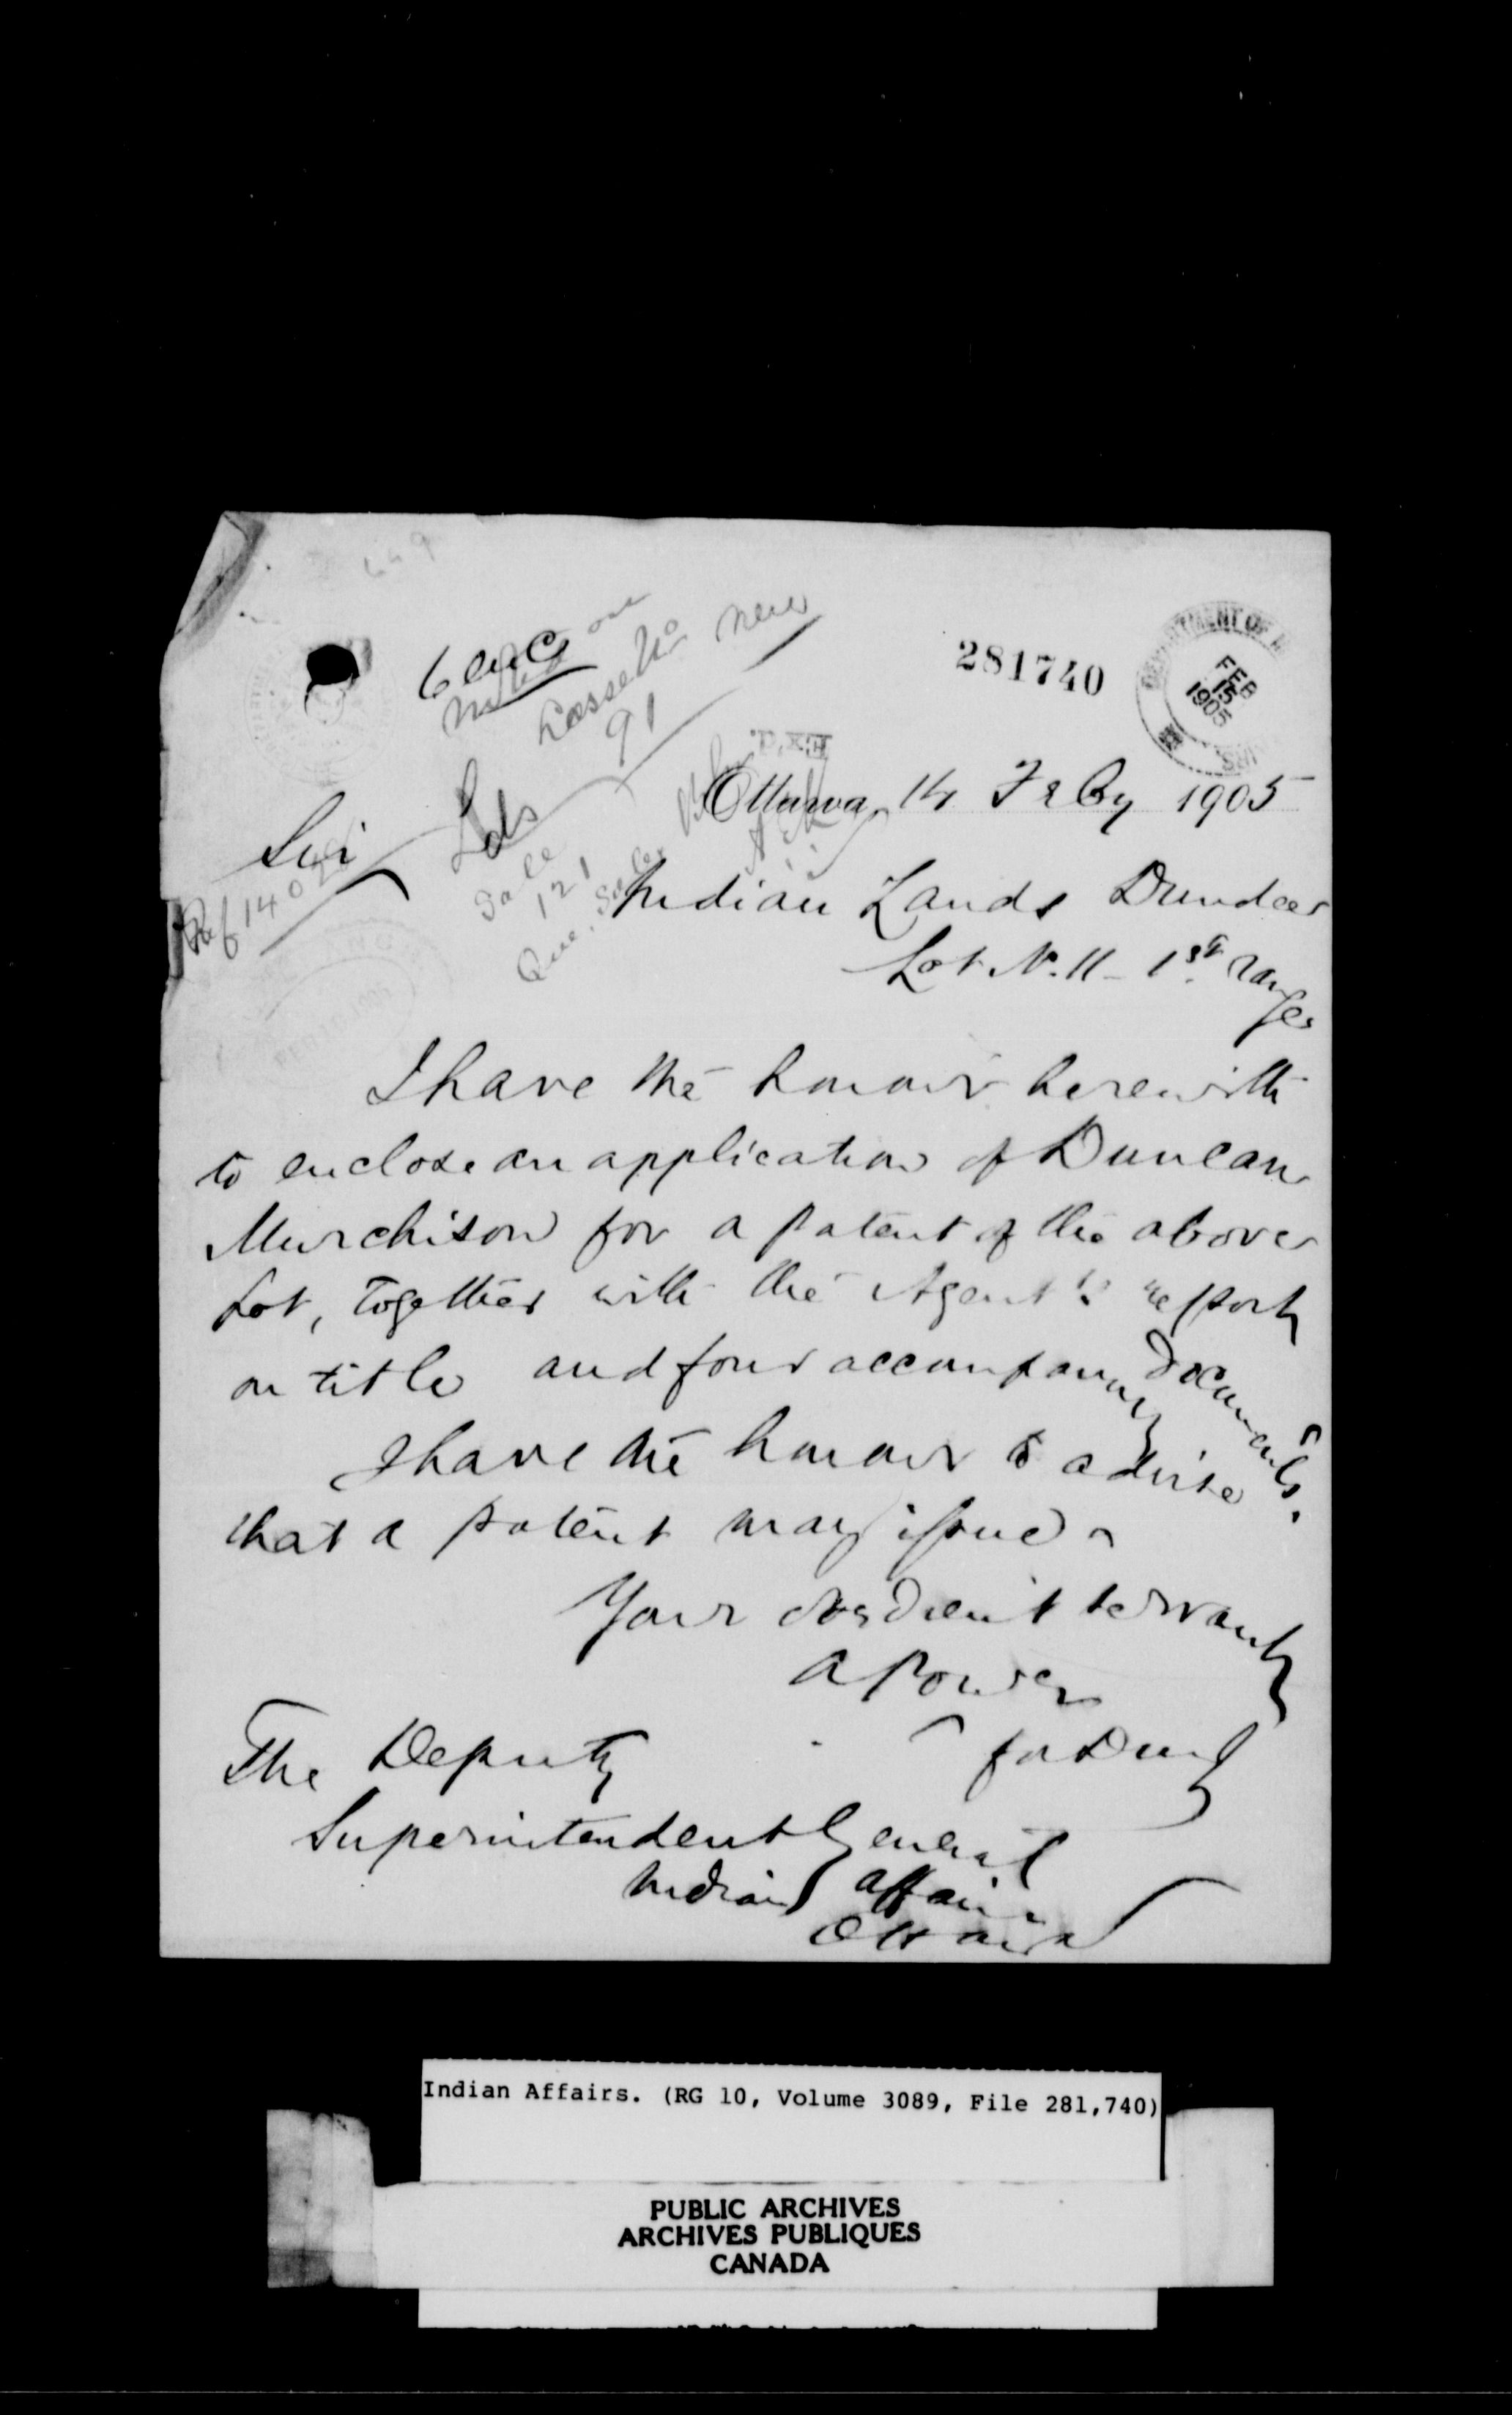 6 enc
new
91
281740
DEPARTMENT OF
FEB
15
1905
Ottawa, 14 Feby 1905
Sir
Lds
Sale
121
Que.
Ref 140
Indian Lands Dundee
Lot No. 11 - 1st range
I have the honour herewith
to enclose an application of Duncan
Murchison for a patent of the above
Lot, together with the Agent's report
on title and four accompany documents.
I have the honour to advise
that a patent may issue
Your obedient servant
A Power
for DMJ
The Deputy
Superintendent General
Indian Affairs
Ottawa
Indian Affairs. (RG 10, Volume 3089, File 281,740)
PUBLIC ARCHIVES
ARCHIVES PUBLIQUES
CANADA